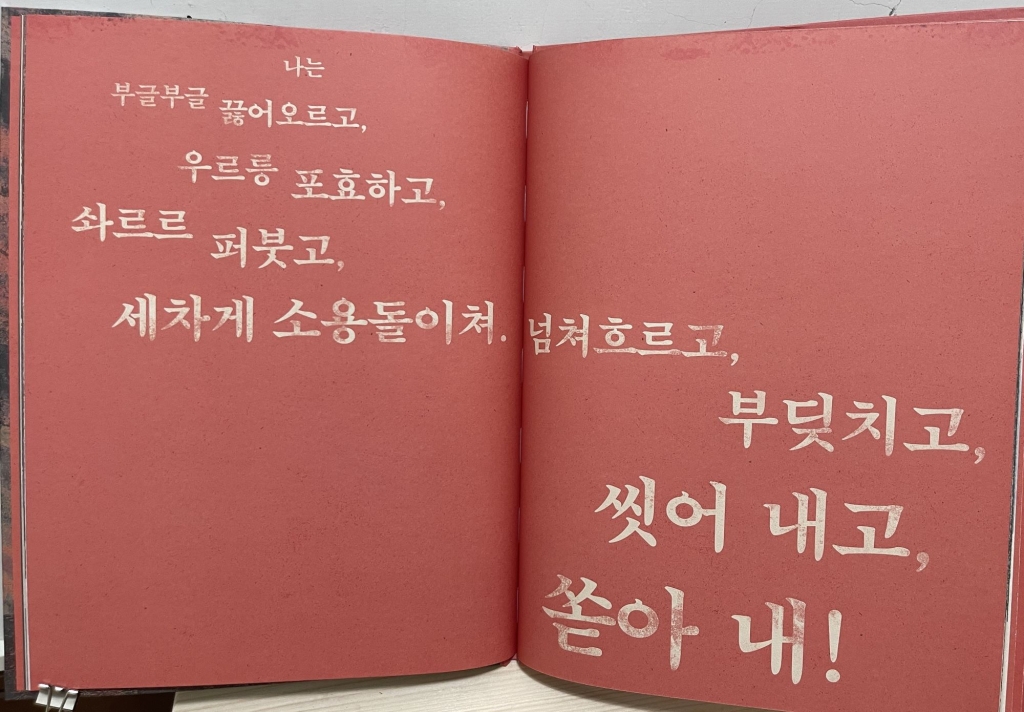 나는
부글부글 끓어오르고,
우르릉 포효하고,
솨르르 퍼붓고,
세차게 소용돌이쳐.
넘쳐흐르고,
부딪치고,
씻어 내고,
쏟아 내!